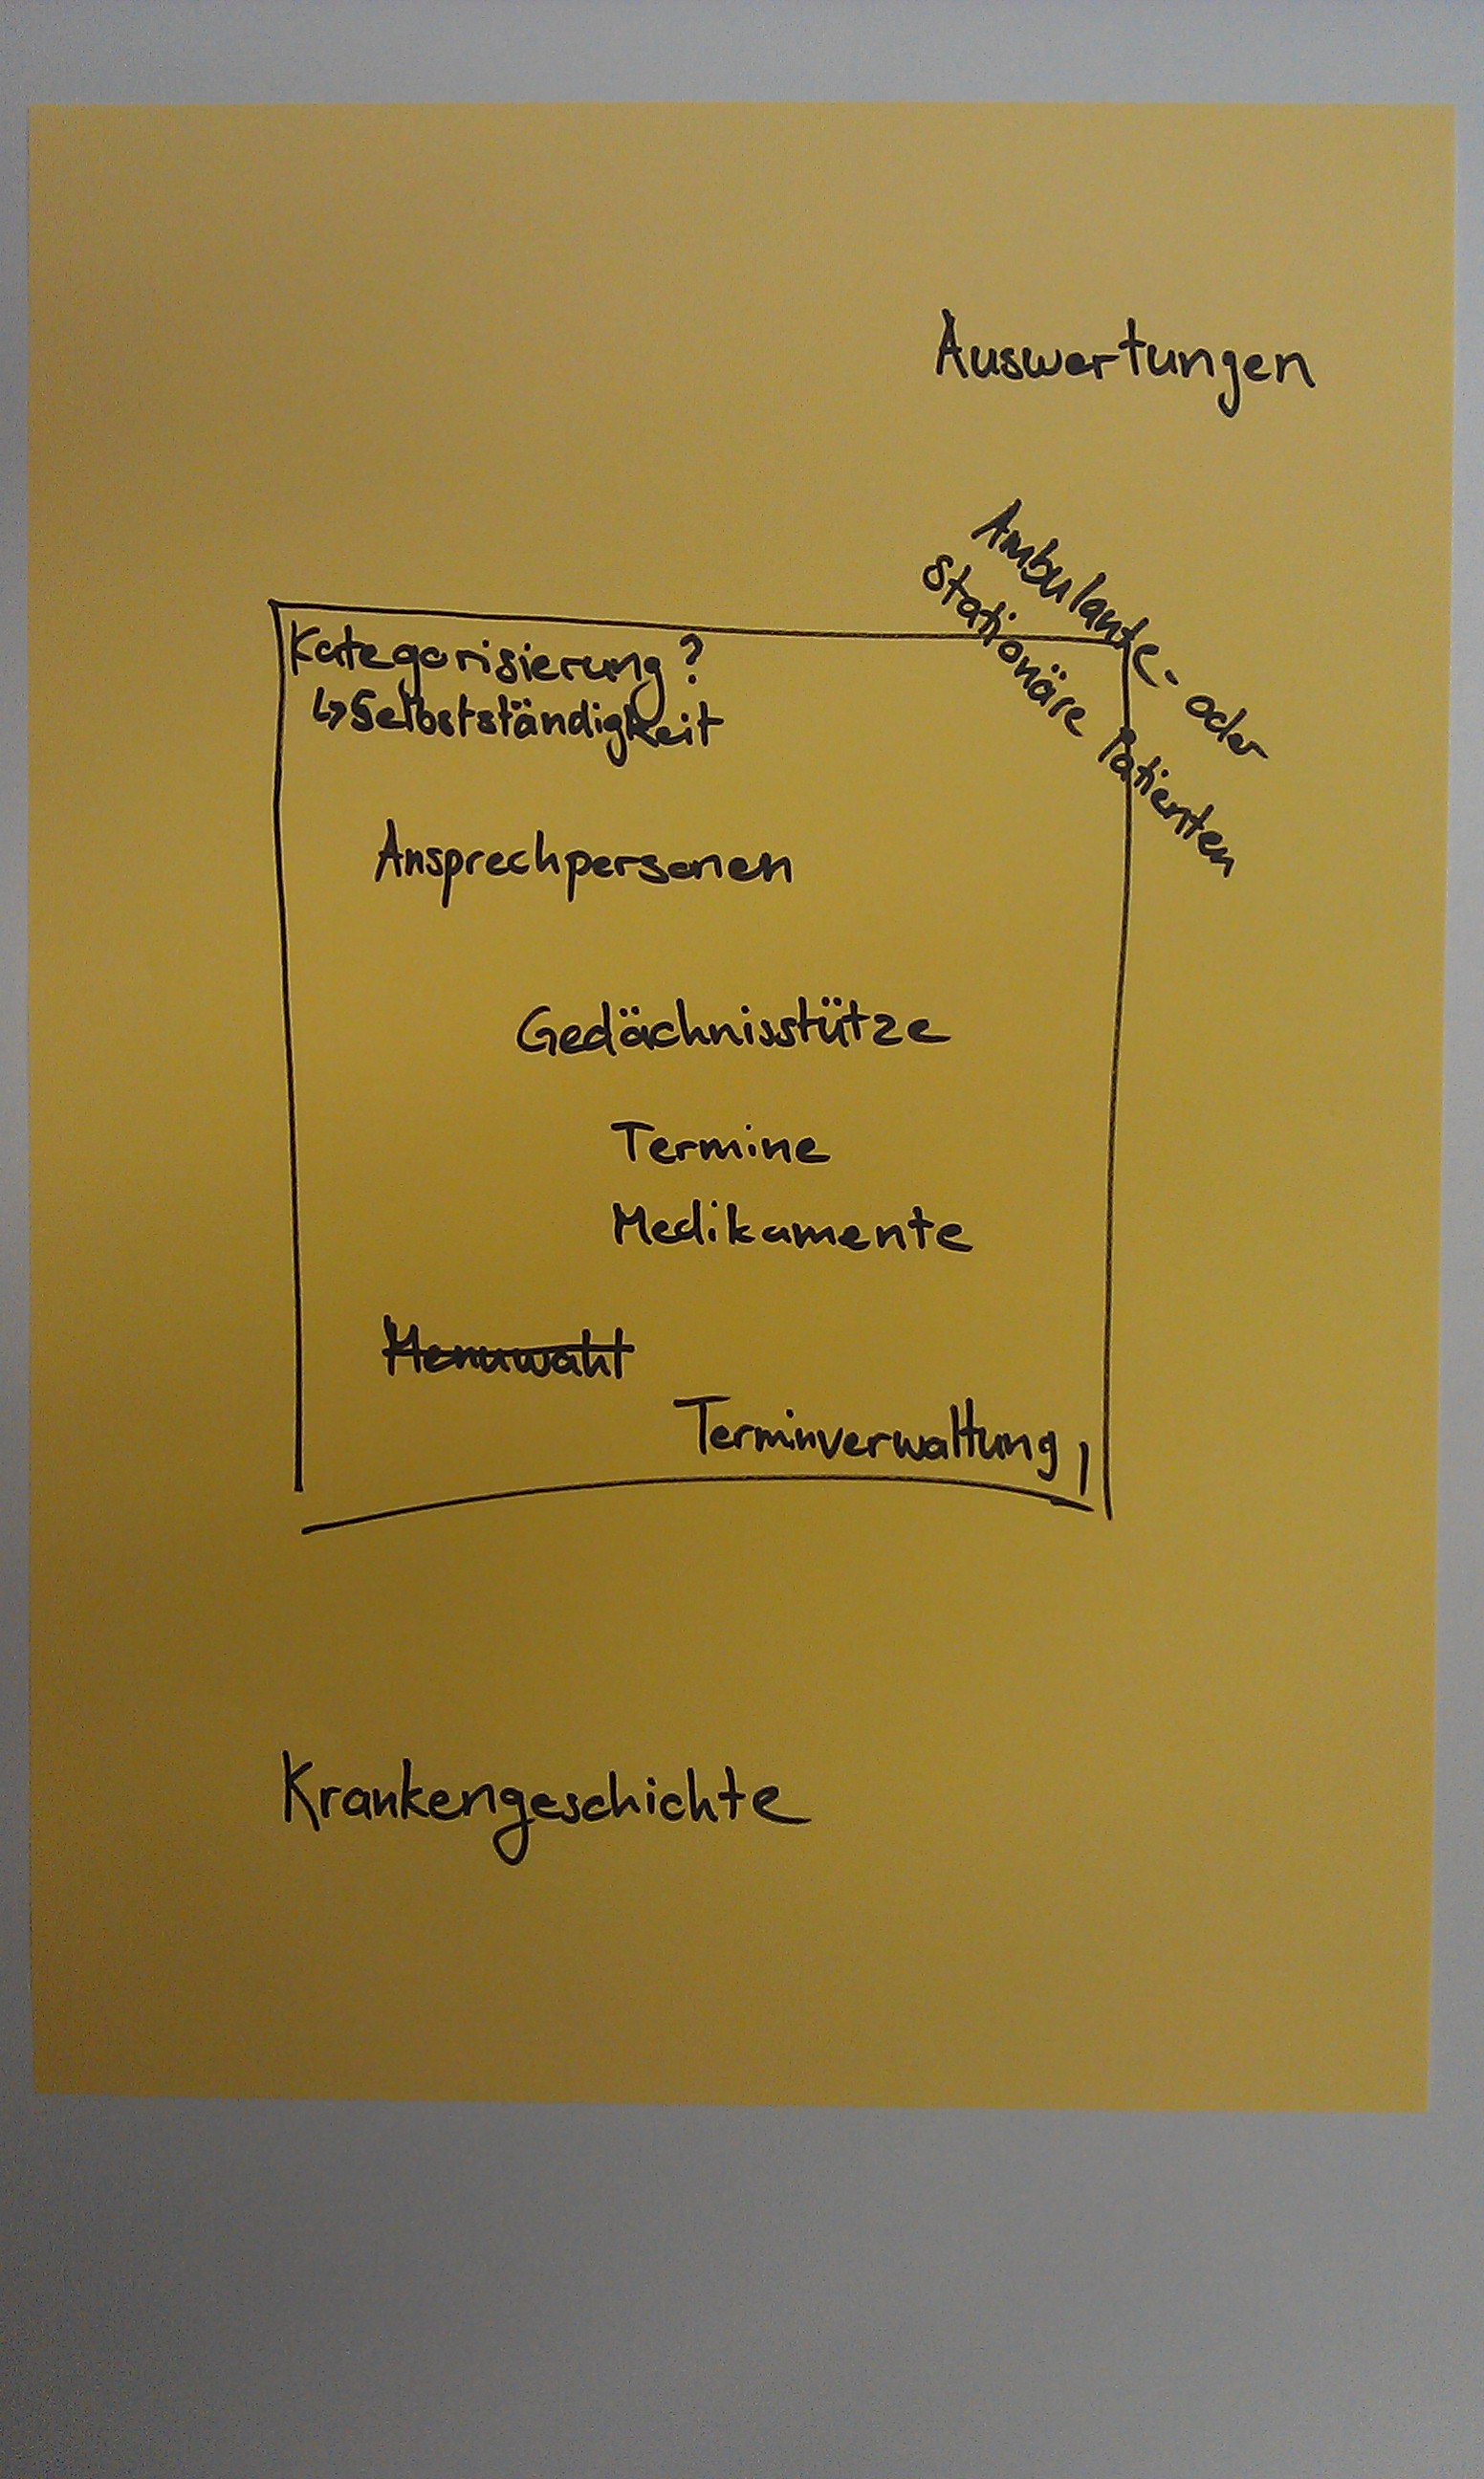 Auswertungen
Ambulante- oder
stationäre Patienten
Kategorisierung?
↳ Selbstständigkeit
Ansprechpersonen
Gedächnisstütze
Termine
Medikamente
Menuwahl
Terminverwaltung,
Krankengeschichte